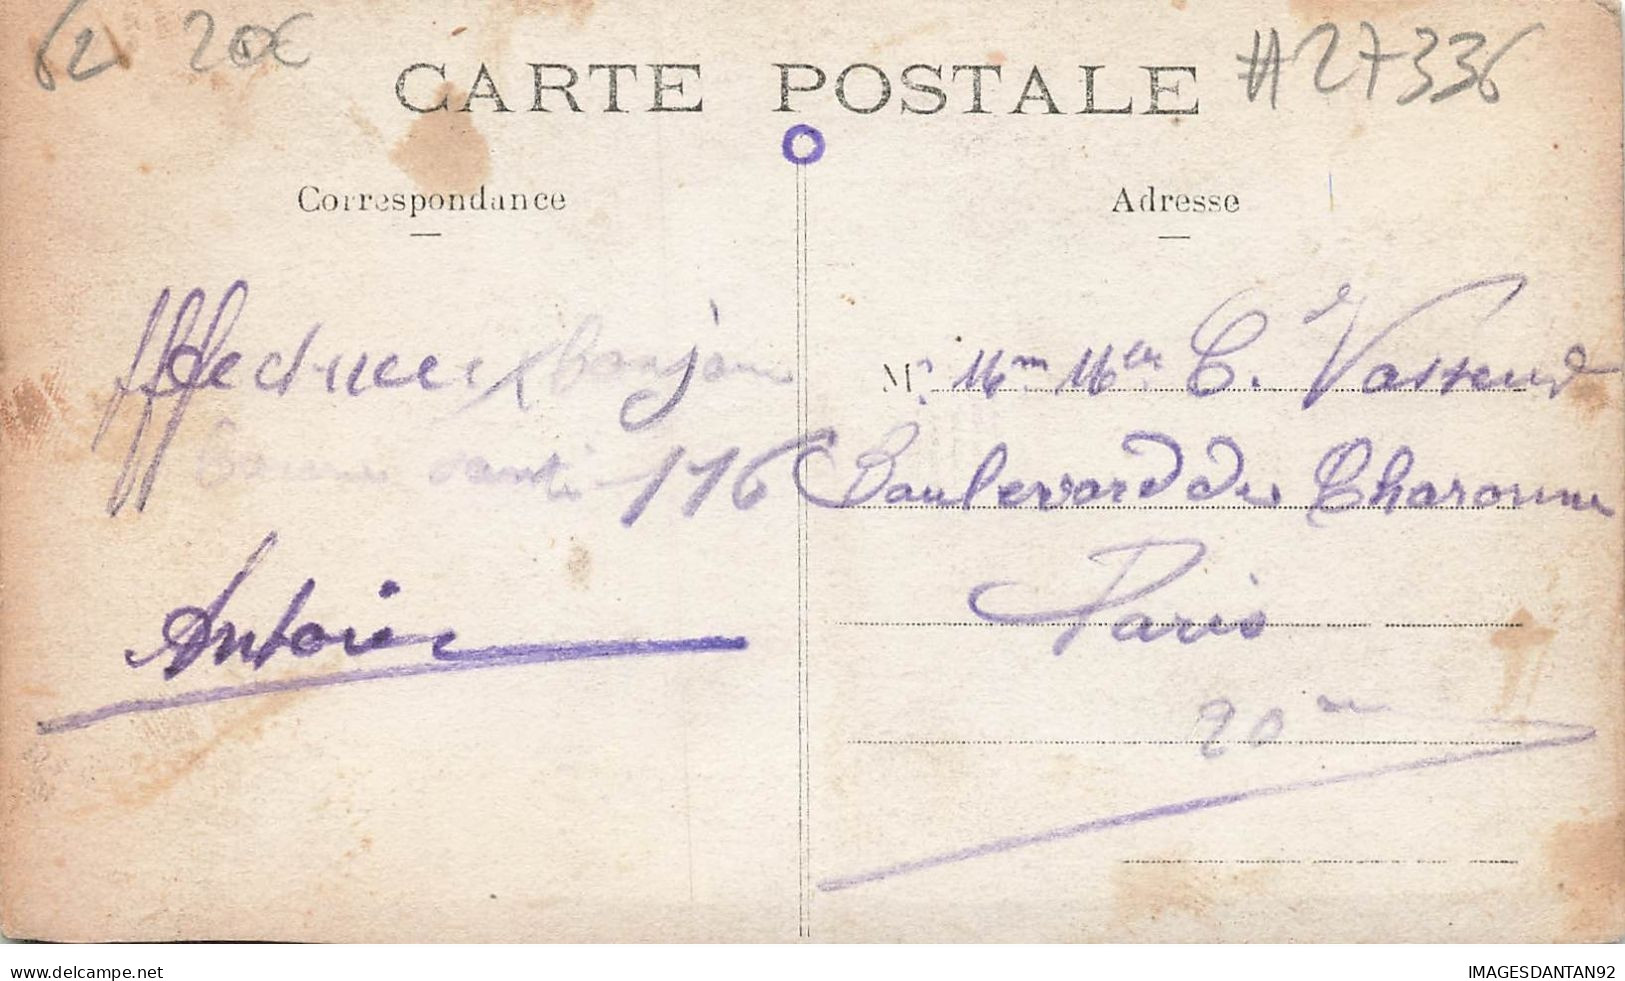 62 20€ #27336
CARTE POSTALE
Correspondance
Adresse
Affectueux bonjour
bonne santé
Antoine
M. Mme Melle C.
116 Boulevard de Charonne
Paris
20me
www.delcampe.net
IMAGESDANTAN92